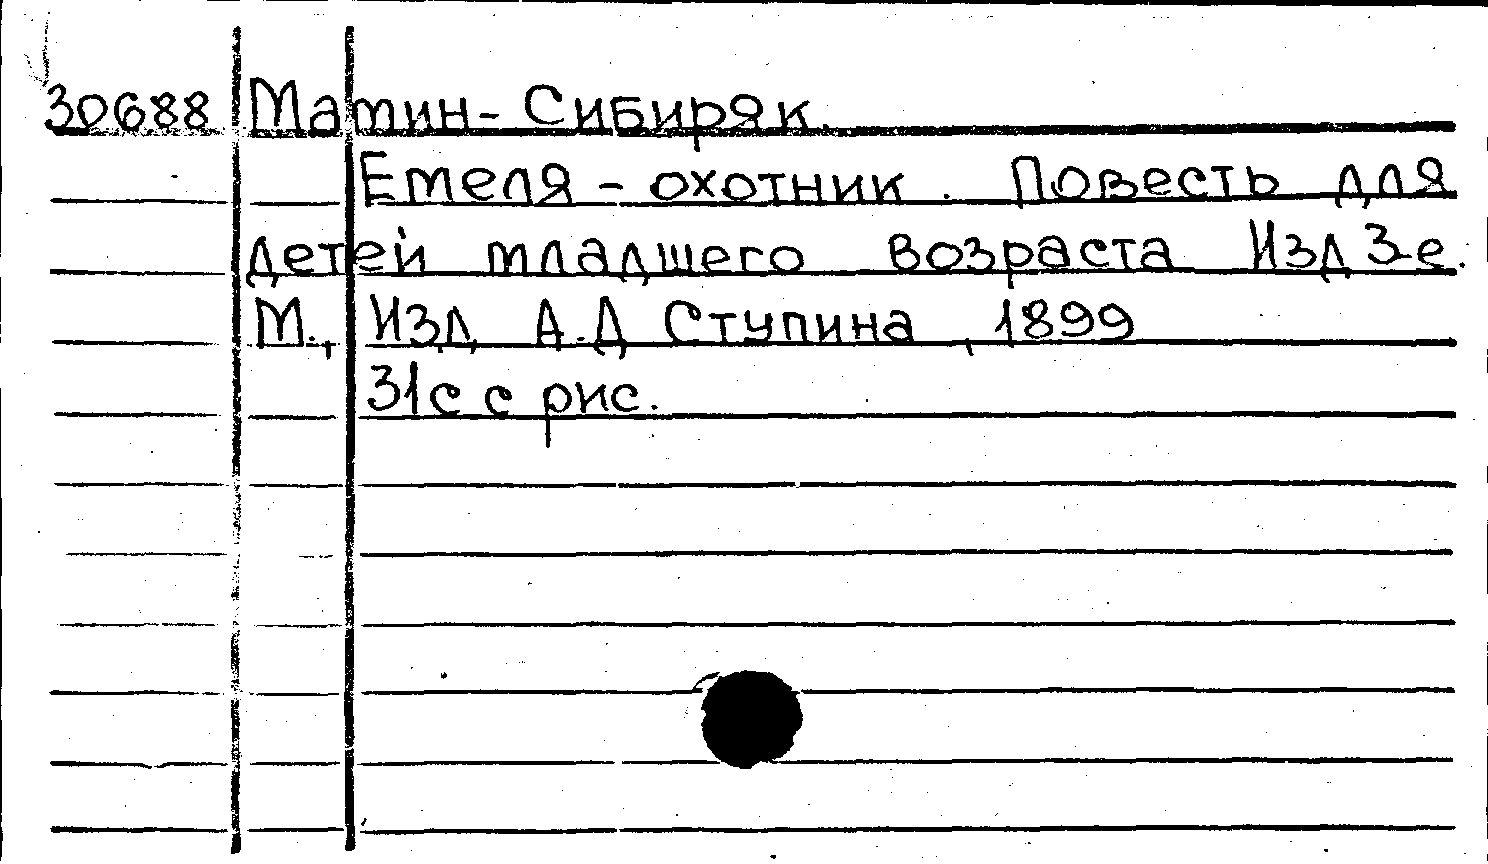 30688 Мамин-Сибиряк.
Емеля - охотник. Повесть для
детей младшего возраста Изд 3-е.
М., Изд. А.Д Ступина, 1899
31с с рис.